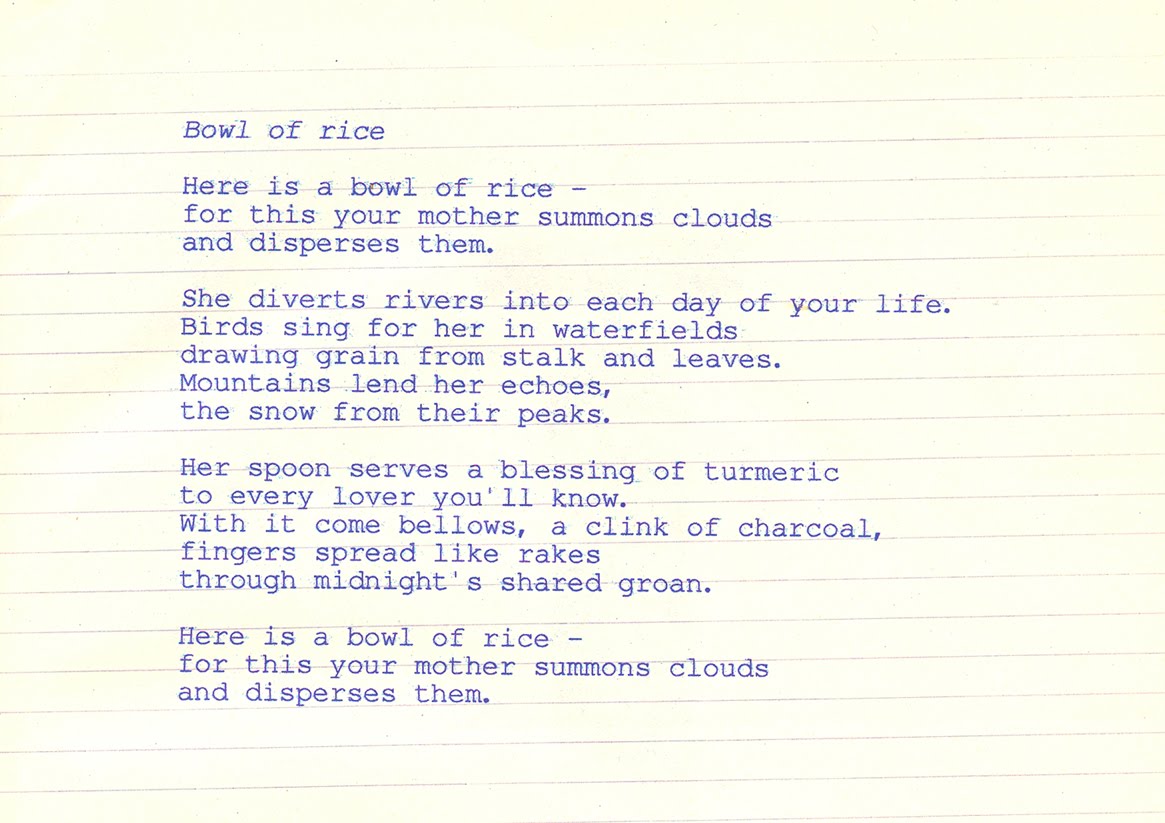 Bowl of rice
Here is a bowl of rice –
for this your mother summons clouds
and disperses them.
She diverts rivers into each day of your life.
Birds sing for her in waterfields
drawing grain from stalk and leaves.
Mountains lend her echoes,
the snow from their peaks.
Her spoon serves a blessing of turmeric
to every lover you'll know.
With it come bellows, a clink of charcoal,
fingers spread like rakes
through midnight's shared groan.
Here is a bowl of rice –
for this your mother summons clouds
and disperses them.